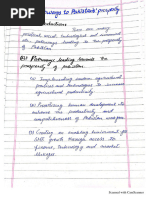 Pathways to Pakistan's prosperity
Introduction:
There are many
political, social, technological and economical
pathways leading to the prosperity
of Pakistan.
(B) Pathways leading towards the
prosperity of pakistan
(a) Implementing modern agricultural
practices and technologies to increase
agricultural productivity
(b) Prioritizing human development to
enhance the productivity and
competitiveness of the Pakistan
(c) Creating an enabling environment for
with access to
finance, technology and market
linkages
Scanned with CamScanner